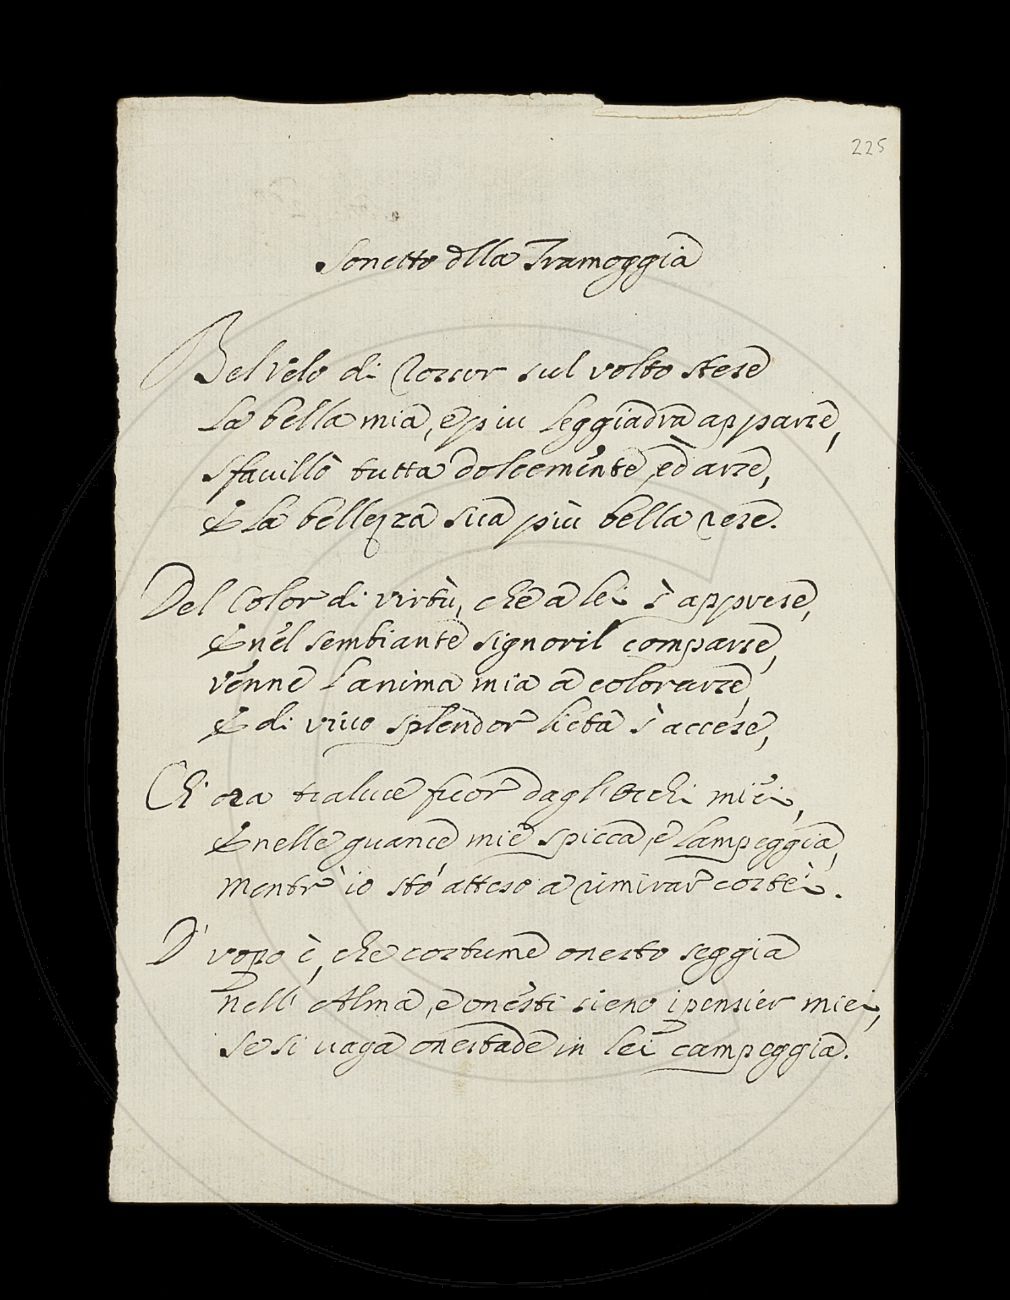 225
Sonetto dlla Tramoggia
Bel Velo di Rossor sul volto stese
La bella mia, e piu leggiadra apparse,
sfauillò tutta dolcemente, ed arse,
E la bellezza sua più bella rese.
Del Color di virtù, che a lei s'apprese,
E nel sembiante signoril comparse,
venne l'anima mia a colorarse,
E di viuo splendor lieta s'accese,
Ch' ora traluce fuor dagl'Occhi miei,
E nelle guance mie spicca, e lampeggia,
mentr' io stó atteso a rimirar costei.
D' vopo è, che costume onesto seggia
nell' Alma, e onesti sieno i pensier miei,
se si uaga onestade in lei campeggia.